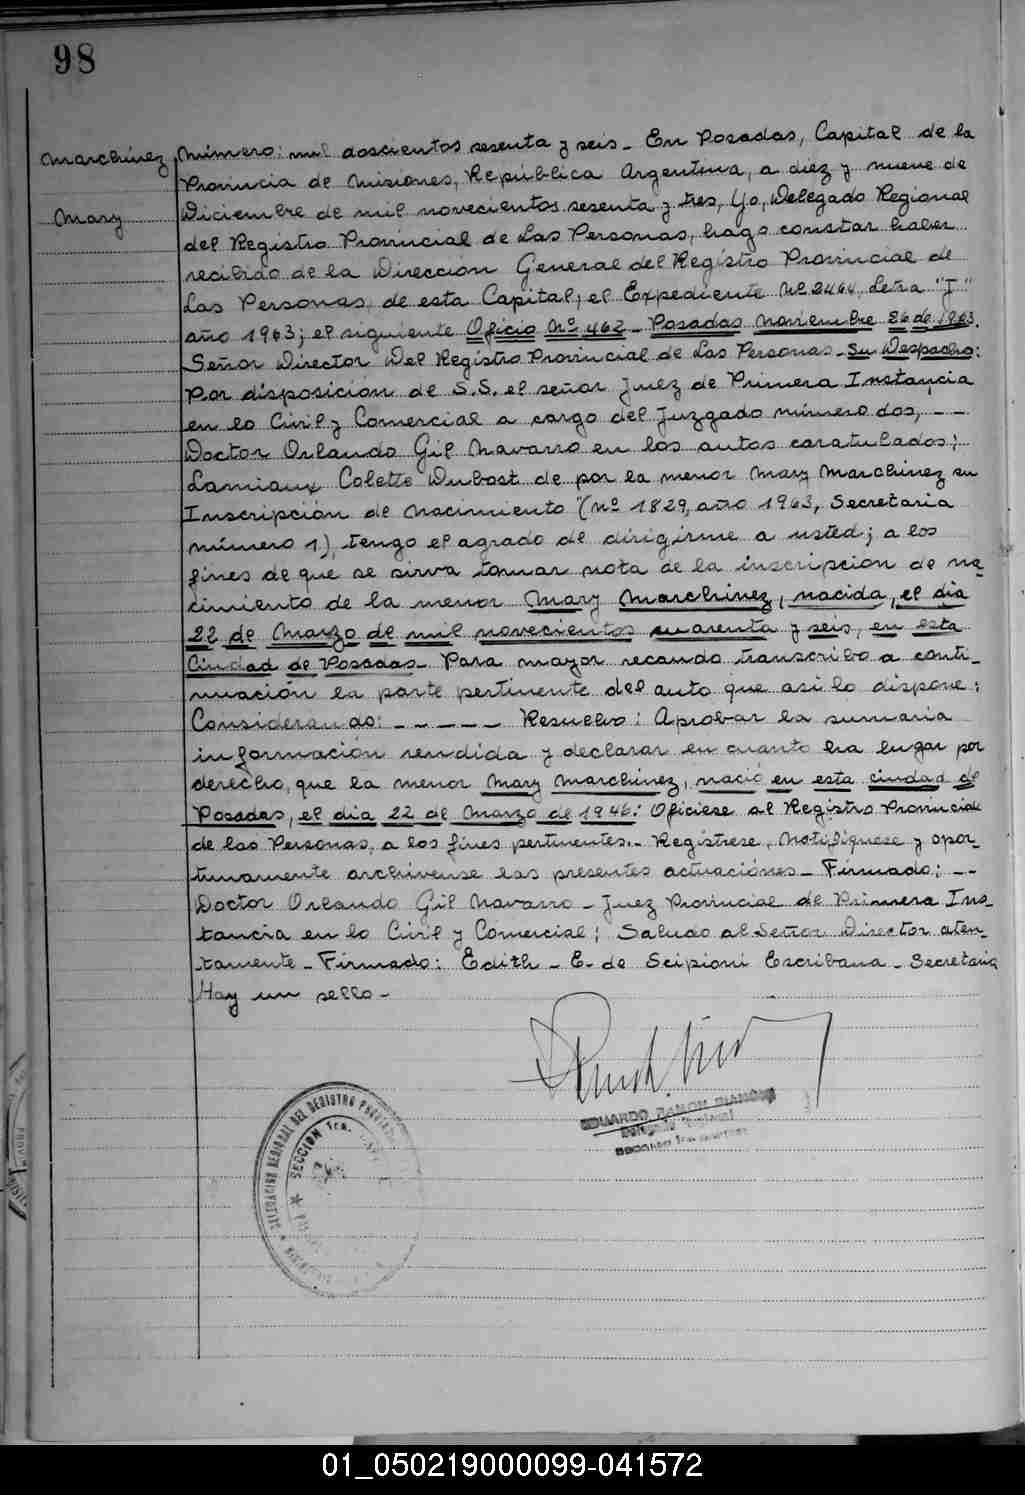 98
Marchinez
Mary
Número: mil doscientos sesenta y seis_ En Posadas, Capital de la
Provincia de Misiones, República Argentina, a diez y nueve de
Diciembre de mil novecientos sesenta y tres, Yo, Delegado Regional
del Registro Provincial de Las Personas, hago constar haber
recibido de la Dirección General del Registro Provincial de
Las Personas, de esta Capital; el Expediente Nº 2464, Letra "I"
año 1963; el siguiente Oficio Nº 462_ Posadas Noviembre 26 de 1963.
Señor Director Del Registro Provincial de Las Personas_ Su Despacho:
Por disposición de S.S. el señor Juez de Primera Instancia
en lo Civil y Comercial a cargo del Juzgado número dos, _ _
Doctor Orlando Gil Navarro en los autos caratulados;
Lamiaux Colette Dubost de por la menor Mary Marchinez su
Inscripción de nacimiento "(nº 1829, año 1963, Secretaria
número 1), tengo el agrado de dirigirme a usted; a los
fines de que se sirva tomar nota de la inscripción de na_
cimiento de la menor Mary Marchinez, nacida, el día
22 de Marzo de mil novecientos cuarenta y seis, en esta
Ciudad de Posadas_ Para mayor recaudo transcribo a conti_
nuación la parte pertinente del auto que así lo dispone:
Considerando: _ _ _ _ _ Resuelvo: Aprobar la sumaria
información rendida y declarar en cuanto ha lugar por
derecho, que la menor Mary Marchinez, nació en esta ciudad de
Posadas, el día 22 de Marzo de 1946: Ofíciese al Registro Provincial
de las Personas, a los fines pertinentes._ Regístrese, Notifíquese y opor_
tunamente archívense las presentes actuaciónes_ Firmado; _ _
Doctor Orlando Gil Navarro_ Juez Provincial de Primera Ins_
tancia en lo Civil y Comercial; Saludo al Señor Director aten_
tamente_ Firmado: Edith_ E. de Scipioni Escribana_ Secretaria
Hay un sello_
EDUARDO RAMON
Delegado Regional
DELEGACION REGIONAL DEL REGISTRO PROVINCIAL
SECCION 1ra.
01_050219000099-041572